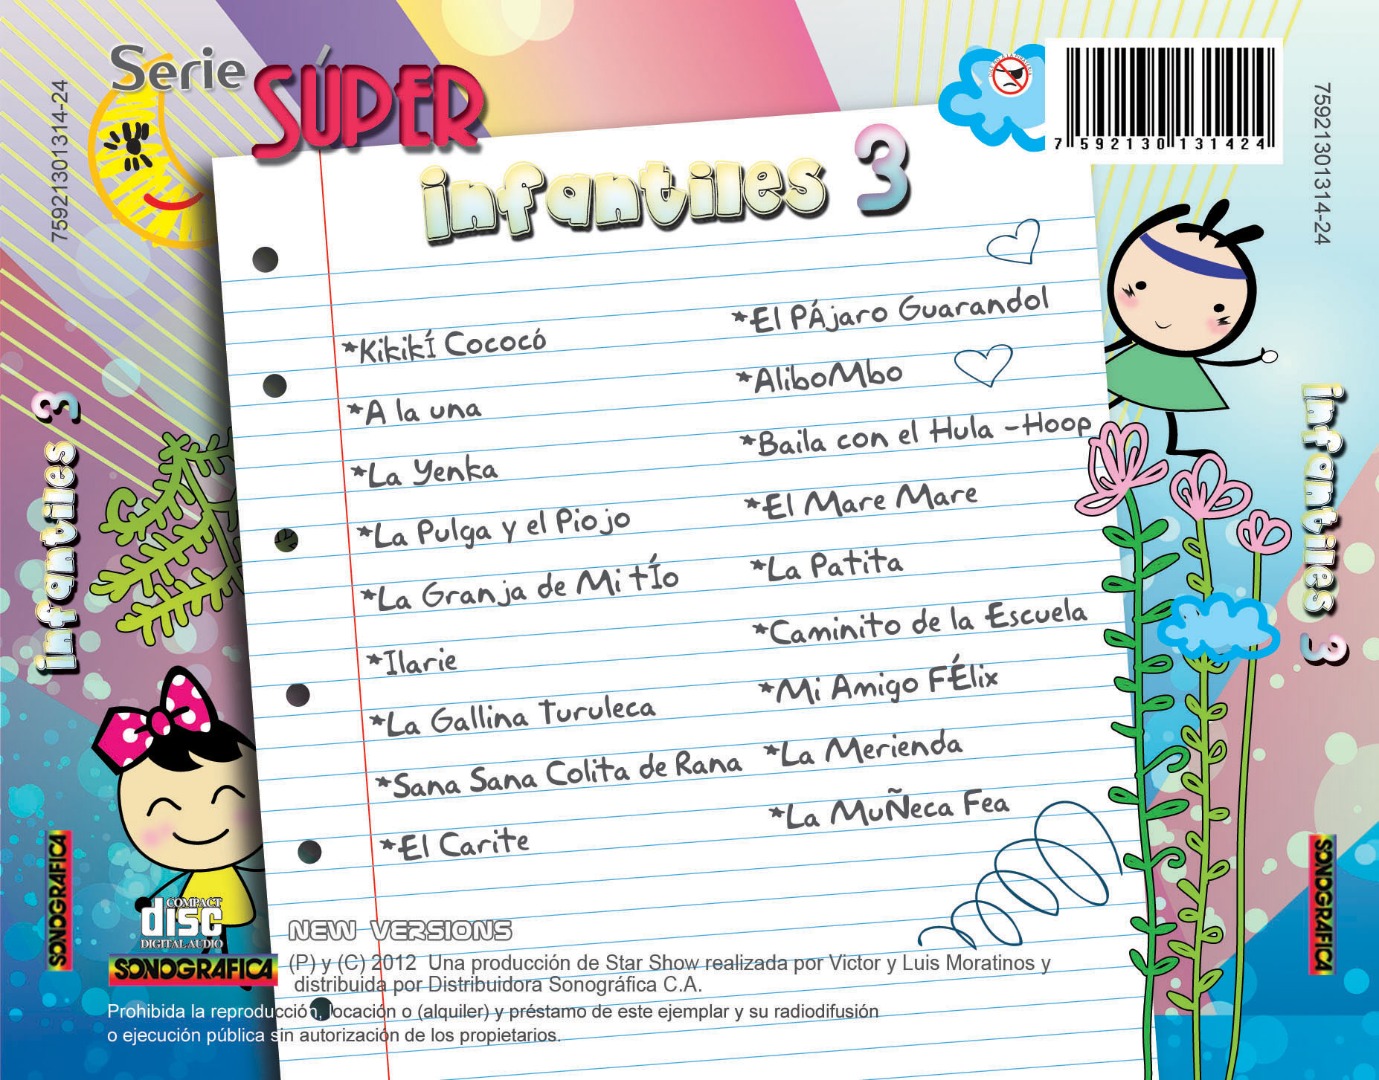 Serie SÚPER
infantiles 3
7 592130 131424
75921301314-24
75921301314-24
*Kikikí Cococó
*A la una
*La Yenka
*La Pulga y el Piojo
*La Granja de Mi tÍo
*Ilarie
*La Gallina Turuleca
*Sana Sana Colita de Rana
*El Carite
*El PÁjaro Guarandol
*AliboMbo
*Baila con el Hula -Hoop
*El Mare Mare
*La Patita
*Caminito de la Escuela
*Mi Amigo FÉlix
*La Merienda
*La MuÑeca Fea
infantiles 3
infantiles 3
SONOGRAFICA
SONOGRAFICA
COMPACT
disc
DIGITAL AUDIO
SONOGRAFICA
NEW VERSIONS
(P) y (C) 2012 Una producción de Star Show realizada por Victor y Luis Moratinos y
distribuida por Distribuidora Sonográfica C.A.
Prohibida la reproducción, locación o (alquiler) y préstamo de este ejemplar y su radiodifusión
o ejecución pública sin autorización de los propietarios.